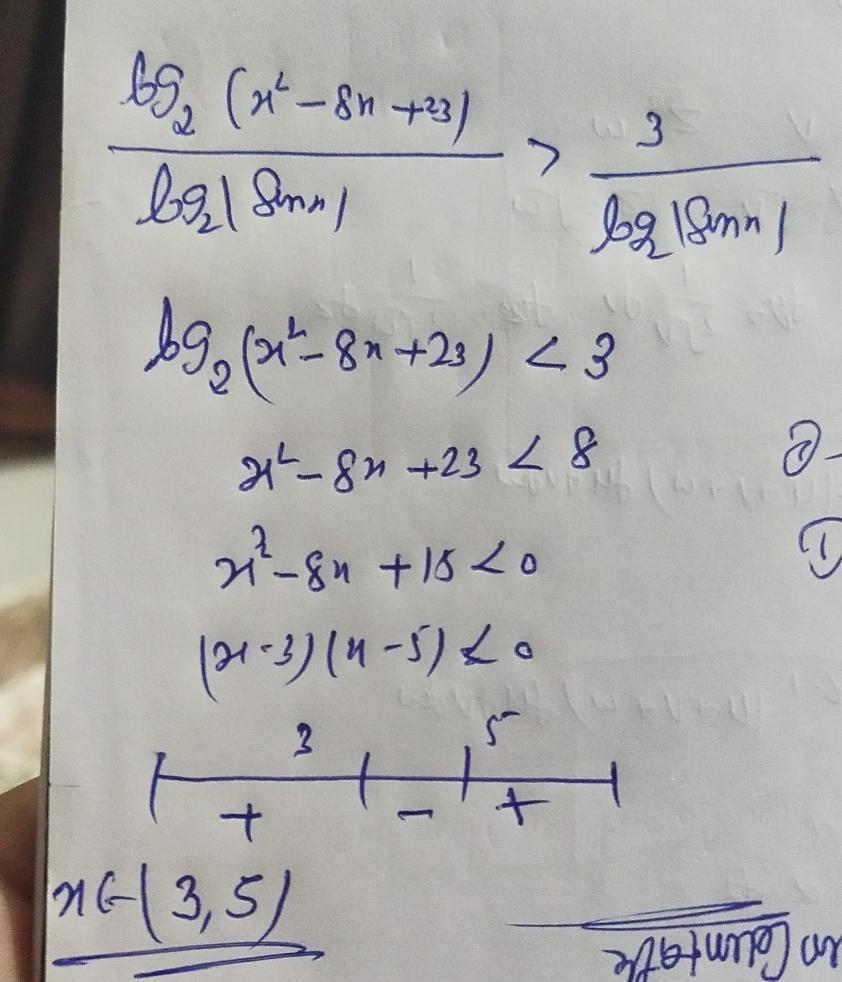 log₂ (x² – 8x + 23) / log₂ | sin x | > 3 / log₂ | sin x |
log₂ (x² – 8x + 23) < 3
x² – 8x + 23 < 8
x² – 8x + 15 < 0
(x - 3) (x – 5) < 0
3 5
+ – +
x ∈ (3, 5)
②
①